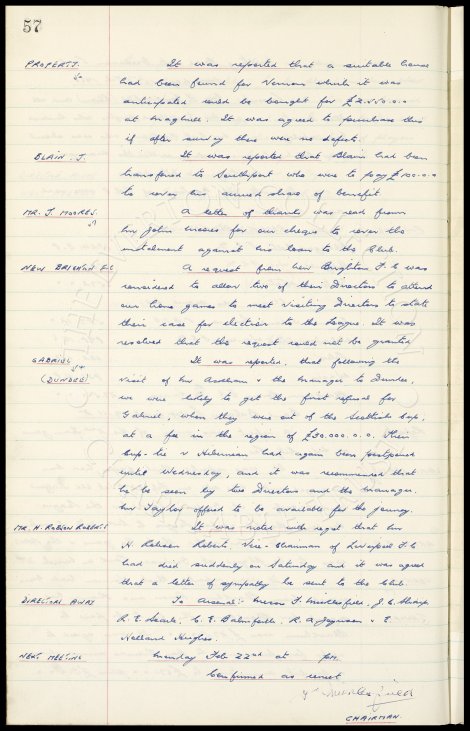 57
PROPERTY. It was reported that a suitable house
had been found for Vernon which it was
anticipated could be bought for £2.550.0.0
at Maghull. It was agreed to purchase this
if after survey there were no defects.
BLAIN. J. It was reported that Blain had been
transferred to Southport who were to pay £100.0.0
to cover his accrued share of benefit
MR. J. MOORES. A letter of thanks was read from
Mr John Moores for our cheque to cover the
instalment against his loan to the Club.
NEW BRIGHTON F.C A request from New Brighton F.C was
considered to allow two of their Directors to attend
our home games to meet visiting Directors to state
their case for election to the League. It was
resolved that the request could not be granted
GABRIEL It was reported, that following the
(DUNDEE) visit of Mr & the Manager to Dundee,
we were likely to get the first refusal for
Gabriel, when they were out of the Scottish Cup,
at a fee in the region of £30.000.0.0. Their
Cup-tie v Hibernian had again been postponed
until Wednesday, and it was recommended that
he be seen by two Directors and the Manager.
Mr Taylor offered to be available for the journey.
MR. H. ROBSON ROBERTS It was noted with regret that Mr
H. Robson Roberts, Vice-Chairman of Liverpool F.C
had died suddenly on Saturday and it was agreed
that a letter of sympathy be sent to the Club.
DIRECTORS AWAY To Arsenal:- Messrs F. Micklesfield, J.C. Sharp,
R.E. Searle, C.E. Balmforth, R.A. Joynson & E.
Holland Hughes.
NEXT MEETING Monday Feb 22nd at pm.
Confirmed as read
Micklesfield
CHAIRMAN.